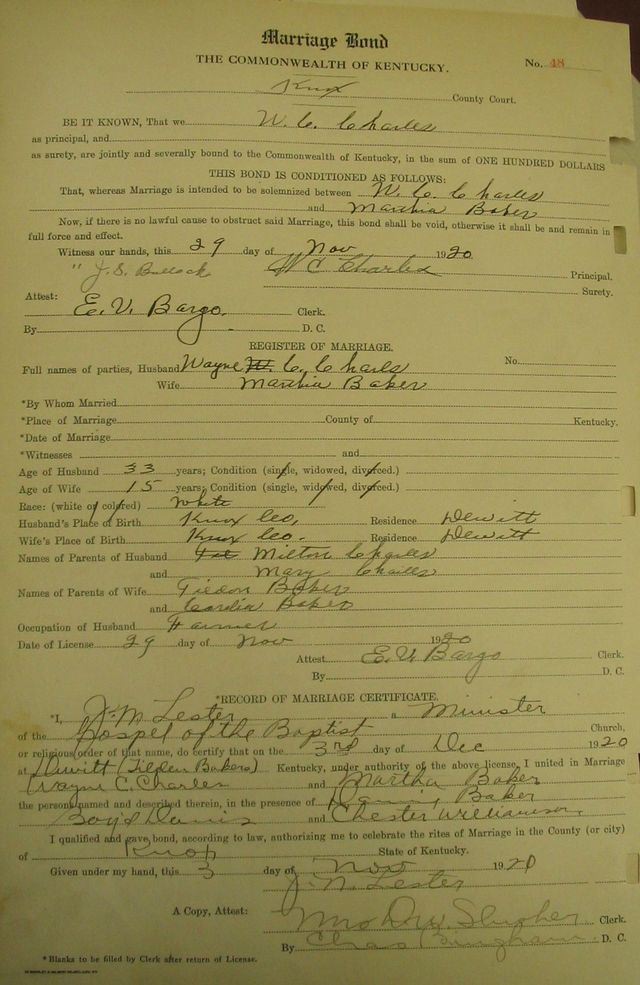 Marriage Bond
THE COMMONWEALTH OF KENTUCKY.
No. 48
Knox County Court.
BE IT KNOWN, That we W. C. Charles
as principal, and
as surety, are jointly and severally bound to the Commonwealth of Kentucky, in the sum of ONE HUNDRED DOLLARS
THIS BOND IS CONDITIONED AS FOLLOWS:
That, whereas Marriage is intended to be solemnized between W. C. Charles
and Marthia Baker
Now, if there is no lawful cause to obstruct said Marriage, this bond shall be void, otherwise it shall be and remain in
full force and effect.
Witness our hands, this 29 day of Nov 1920
" J. S. Bullock W C Charles Principal.
Surety.
Attest: E. V. Bargo. Clerk.
By D. C.
REGISTER OF MARRIAGE.
Full names of parties, Husband Wayne W. C. Charles No.
Wife Marthia Baker
*By Whom Married
*Place of Marriage County of Kentucky.
*Date of Marriage
*Witnesses and
Age of Husband 33 years; Condition (single, widowed, divorced.)
Age of Wife 15 years; Condition (single, widowed, divorced.)
Race: (white or colored) White
Husband's Place of Birth Knox Co, Residence Dewitt
Wife's Place of Birth Knox Co. Residence Dewitt
Names of Parents of Husband Milton Charles
and Mary Charles
Names of Parents of Wife Tilden Baker
and Cordia Baker
Occupation of Husband Farmer
Date of License 29 day of Nov 1920
Attest E. V. Bargo Clerk.
By D. C.
*RECORD OF MARRIAGE CERTIFICATE.
*I, J. N. Lester a Minister
of the Gospel of the Baptist Church,
or religious order of that name, do certify that on the 3rd day of Dec 1920
at Dewitt (Tilden Bakers) Kentucky, under authority of the above license, I united in Marriage
Wayne C. Charles and Martha Baker
the persons named and described therein, in the presence of Baker
Boyd Davis and Chester Williamson,
I qualified and gave bond, according to law, authorizing me to celebrate the rites of Marriage in the County (or city)
of Knox State of Kentucky.
Given under my hand, this 3 day of Nov 1920
J. N. Lester
A Copy, Attest: Mrs Drew Slusher Clerk.
By Chas Bingham D. C.
*Blanks to be filled by Clerk after return of License.